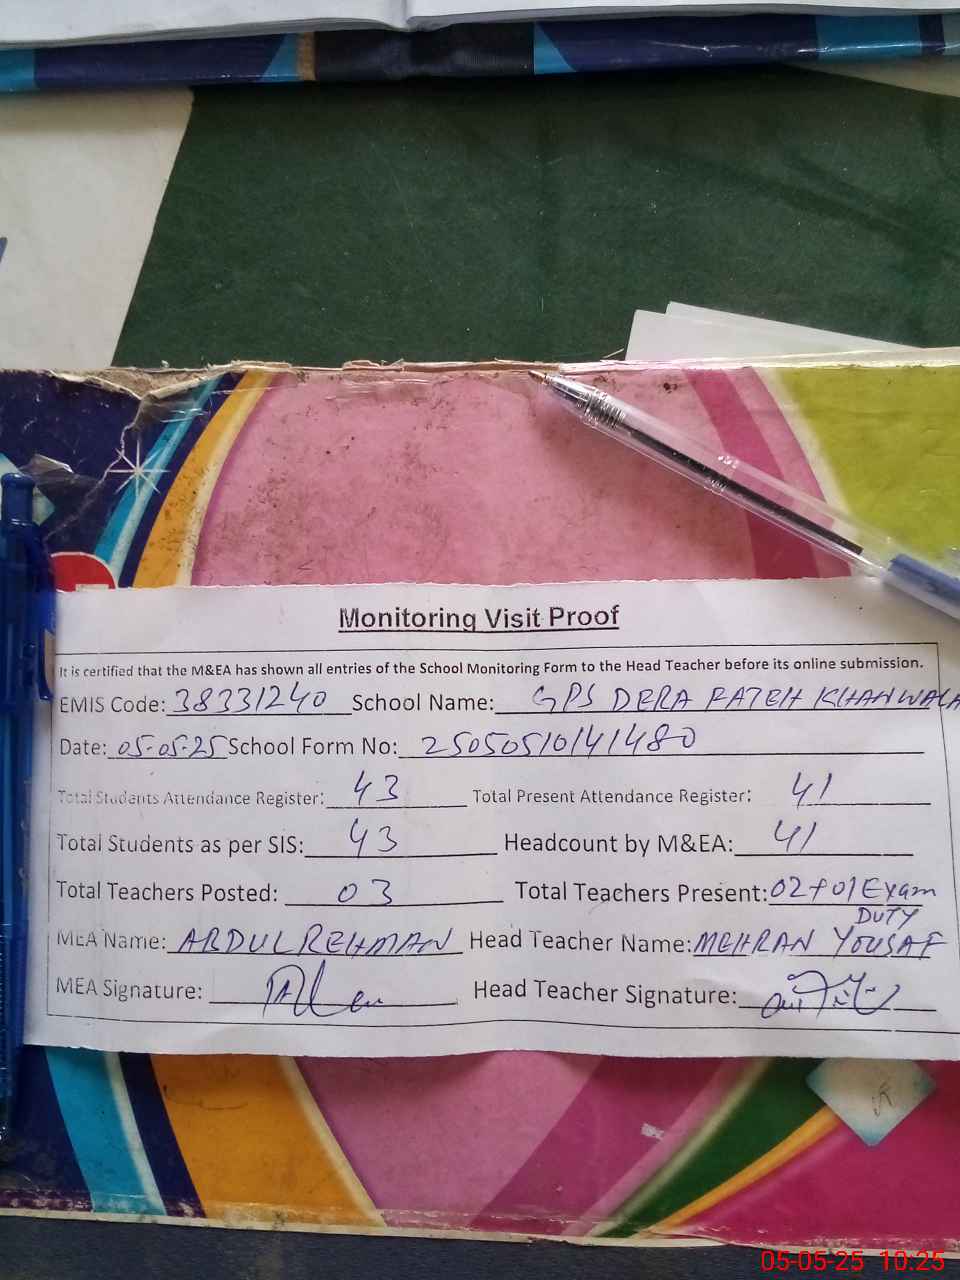 Monitoring Visit Proof
It is certified that the M&EA has shown all entries of the School Monitoring Form to the Head Teacher before its online submission.
EMIS Code: 38331240 School Name: GPS DERA FATEH KHANWALA
Date: 05-05-25 School Form No: 25050510141480
Total Students Attendance Register: 43 Total Present Attendance Register: 41
Total Students as per SIS: 43 Headcount by M&EA: 41
Total Teachers Posted: 03 Total Teachers Present: 02+01 Exam
DUTY
MEA Name: ABDUL REHMAN Head Teacher Name: MEHRAN YOUSAF
MEA Signature: Head Teacher Signature:
05-05-25 10:25